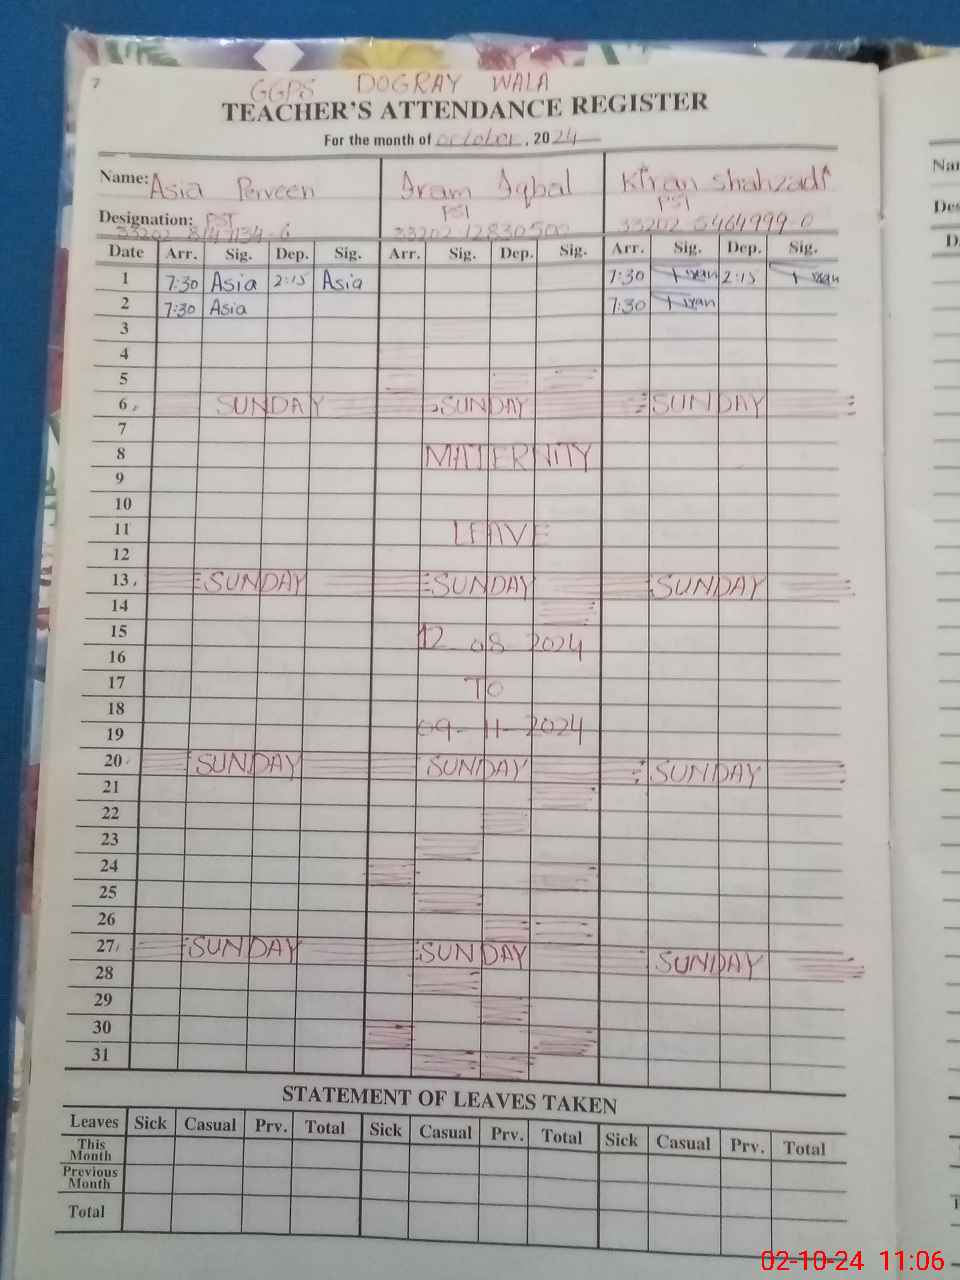 7
GGPS DOGRAY WALA
TEACHER'S ATTENDANCE REGISTER
For the month of october, 2024
Name: Asia Perveen Iram Iqbal Kiran Shahzadi
Designation: PST PST PST
33202 33202-12830500 33202-5464999-0
Date Arr. Sig. Dep. Sig. Arr. Sig. Dep. Sig. Arr. Sig. Dep. Sig.
1 7:30 Asia 2:15 Asia 7:30 Kiran 2:15 Kiran
2 7:30 Asia 7:30 Kiran
3
4
5
6 SUNDAY SUNDAY SUNDAY
7
8 MATERNITY
9
10
11 LEAVE
12
13 SUNDAY SUNDAY SUNDAY
14
15 12 08 2024
16
17 TO
18
19 09-11-2024
20 SUNDAY SUNDAY SUNDAY
21
22
23
24
25
26
27 SUNDAY SUNDAY SUNDAY
28
29
30
31
STATEMENT OF LEAVES TAKEN
Leaves Sick Casual Prv. Total Sick Casual Prv. Total Sick Casual Prv. Total
This Month
Previous Month
Total
02-10-24 11:06